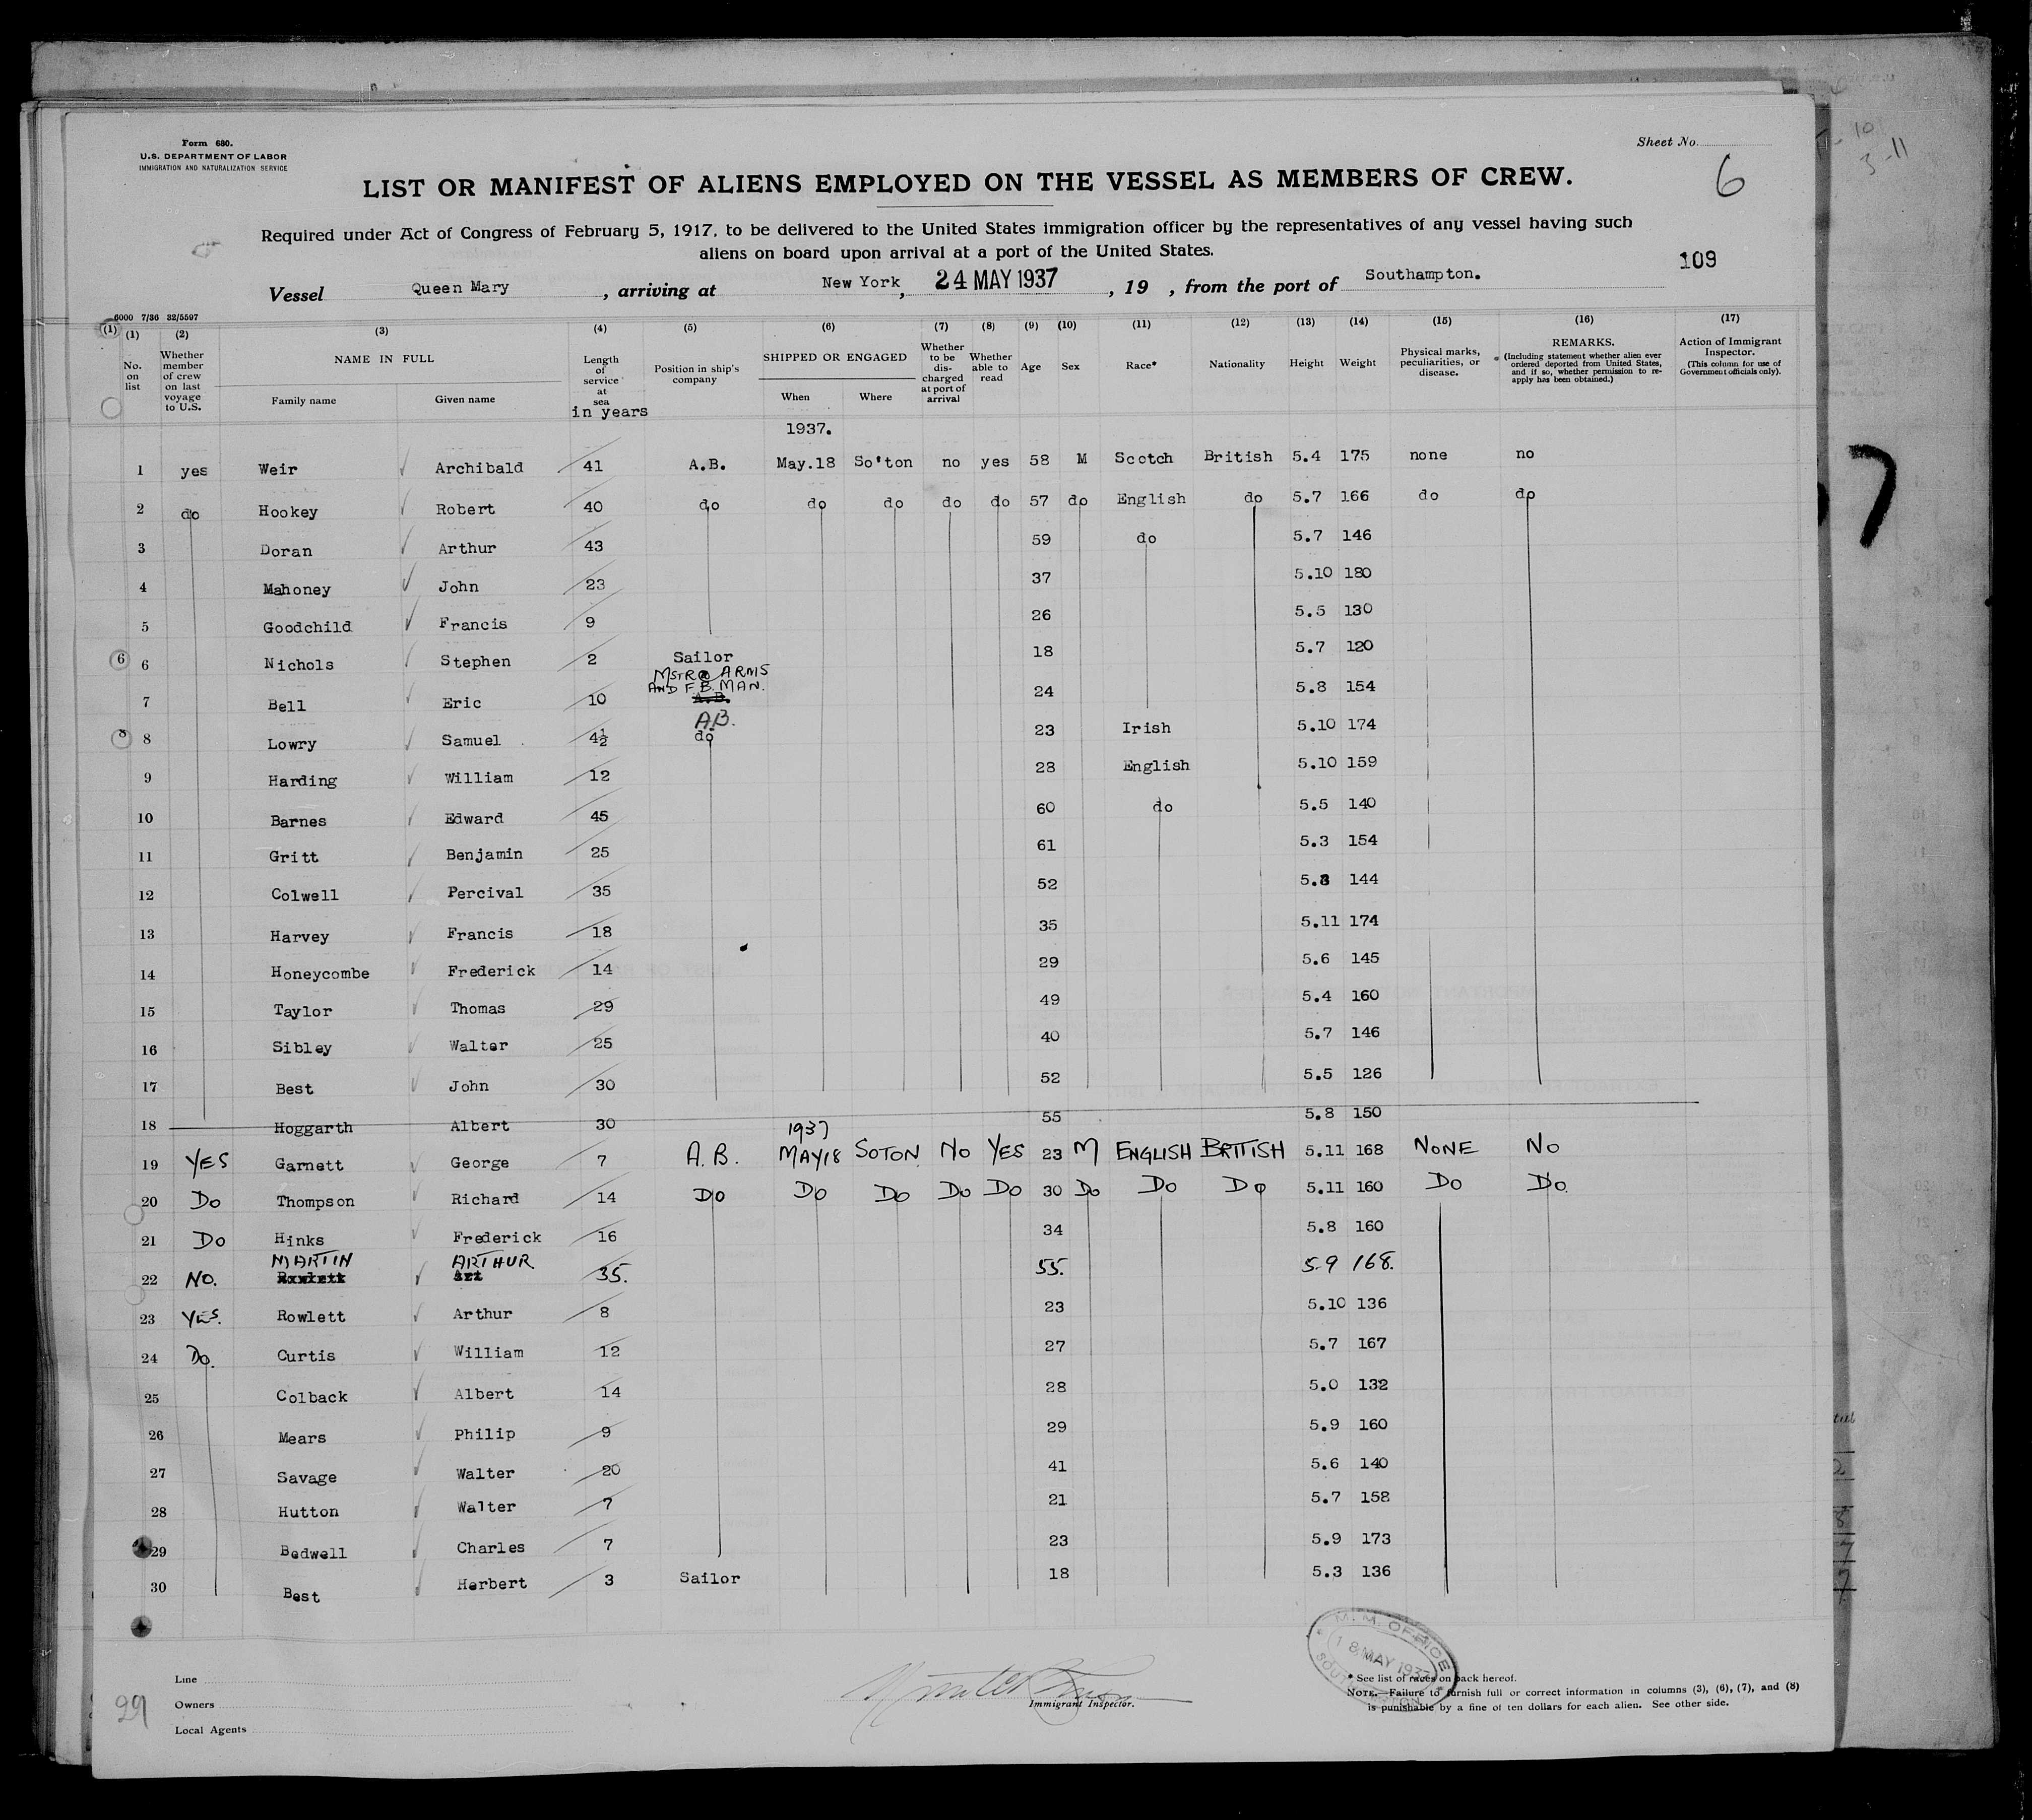 Form 680.
U.S. DEPARTMENT OF LABOR
IMMIGRATION AND NATURALIZATION SERVICE
Sheet No.
6
LIST OR MANIFEST OF ALIENS EMPLOYED ON THE VESSEL AS MEMBERS OF CREW.
Required under Act of Congress of February 5, 1917, to be delivered to the United States immigration officer by the representatives of any vessel having such
aliens on board upon arrival at a port of the United States.
109
Vessel Queen Mary, arriving at New York, 24 MAY 1937, 19 , from the port of Southampton.
6000 7/36 32/5597
(1) (1) (2) (3) (4) (5) (6) (7) (8) (9) (10) (11) (12) (13) (14) (15) (16) (17)
No. on list
Whether member of crew on last voyage to U.S.
NAME IN FULL
Family name Given name
Length of service at sea in years
Position in ship's company
SHIPPED OR ENGAGED
When Where
Whether to be discharged at port of arrival
Whether able to read
Age
Sex
Race*
Nationality
Height
Weight
Physical marks, peculiarities, or disease.
REMARKS.
(Including statement whether alien ever ordered deported from United States, and if so, whether permission to reapply has been obtained.)
Action of Immigrant Inspector.
(This column for use of Government officials only).
1937.
1 yes Weir Archibald 41 A.B. May.18 So'ton no yes 58 M Scotch British 5.4 175 none no
2 do Hookey Robert 40 do do do do do 57 do English do 5.7 166 do do
3 Doran Arthur 43 59 do 5.7 146
4 Mahoney John 23 37 5.10 180
5 Goodchild Francis 9 26 5.5 130
6 6 Nichols Stephen 2 Sailor 18 5.7 120
MSTR @ ARMS
AND F.B. MAN.
7 Bell Eric 10 A.B. 24 5.8 154
A.B.
8 8 Lowry Samuel 4½ do 23 Irish 5.10 174
9 Harding William 12 28 English 5.10 159
10 Barnes Edward 45 60 do 5.5 140
11 Gritt Benjamin 25 61 5.3 154
12 Colwell Percival 35 52 5.8 144
13 Harvey Francis 18 35 5.11 174
14 Honeycombe Frederick 14 29 5.6 145
15 Taylor Thomas 29 49 5.4 160
16 Sibley Walter 25 40 5.7 146
17 Best John 30 52 5.5 126
18 Hoggarth Albert 30 55 5.8 150
1937
19 YES Garnett George 7 A.B. MAY 18 SOTON. NO YES 23 M ENGLISH BRITISH 5.11 168 NONE NO
20 DO Thompson Richard 14 DO DO DO DO DO 30 DO DO DO 5.11 160 DO DO.
21 DO Hinks Frederick 16 34 5.8 160
MARTIN ARTHUR
22 NO. Rowlett Art 35. 55. 5.9 168.
23 YES. Rowlett Arthur 8 23 5.10 136
24 DO. Curtis William 12 27 5.7 167
25 Colback Albert 14 28 5.0 132
26 Mears Philip 9 29 5.9 160
27 Savage Walter 20 41 5.6 140
28 Hutton Walter 7 21 5.7 158
29 Bedwell Charles 7 23 5.9 173
30 Best Herbert 3 Sailor 18 5.3 136
M. M. OFFICE
18 MAY 1937
SOUTHAMPTON
Line
Owners
Local Agents
Immigrant Inspector.
* See list of races on back hereof.
NOTE.—Failure to furnish full or correct information in columns (3), (6), (7), and (8)
is punishable by a fine of ten dollars for each alien. See other side.
99